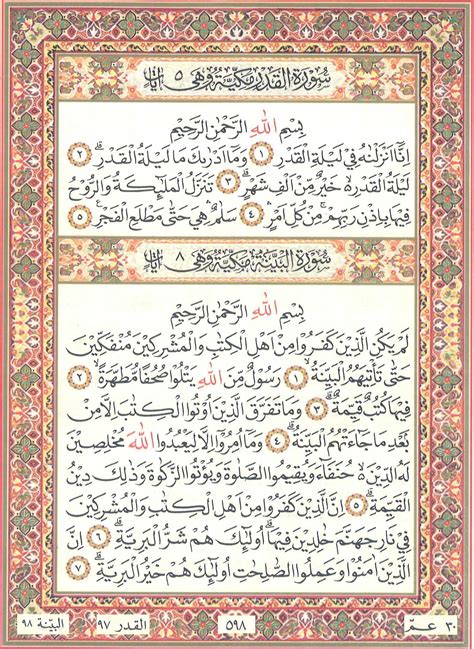 سورة القدر مكية وهي ٥ آيات
بِسْمِ اللّٰهِ الرَّحْمٰنِ الرَّحِيمِ
اِنَّا اَنْزَلْنَاهُ فِي لَيْلَةِ الْقَدْرِ ۝١ وَمَا اَدْرٰيكَ مَا لَيْلَةُ الْقَدْرِ ۝٢
لَيْلَةُ الْقَدْرِ خَيْرٌ مِنْ اَلْفِ شَهْرٍ ۝٣ تَنَزَّلُ الْمَلٰٓئِكَةُ وَالرُّوحُ
فِيهَا بِاِذْنِ رَبِّهِمْ مِنْ كُلِّ اَمْرٍ ۝٤ سَلَامٌ هِيَ حَتّٰى مَطْلَعِ الْفَجْرِ ۝٥
سورة البينة مكية وهي ٨ آيات
بِسْمِ اللّٰهِ الرَّحْمٰنِ الرَّحِيمِ
لَمْ يَكُنِ الَّذِينَ كَفَرُوا مِنْ اَهْلِ الْكِتٰبِ وَالْمُشْرِكِينَ مُنْفَكِّينَ
حَتّٰى تَأْتِيَهُمُ الْبَيِّنَةُ ۝١ رَسُولٌ مِنَ اللّٰهِ يَتْلُوا صُحُفًا مُطَهَّرَةً ۝٢
فِيهَا كُتُبٌ قَيِّمَةٌ ۝٣ وَمَا تَفَرَّقَ الَّذِينَ اُوتُوا الْكِتٰبَ اِلَّا مِنْ
بَعْدِ مَا جَاءَتْهُمُ الْبَيِّنَةُ ۝٤ وَمَا اُمِرُوا اِلَّا لِيَعْبُدُوا اللّٰهَ مُخْلِصِينَ
لَهُ الدِّينَ حُنَفَاءَ وَيُقِيمُوا الصَّلٰوةَ وَيُؤْتُوا الزَّكٰوةَ وَذٰلِكَ دِينُ
الْقَيِّمَةِ ۝٥ اِنَّ الَّذِينَ كَفَرُوا مِنْ اَهْلِ الْكِتٰبِ وَالْمُشْرِكِينَ
فِي نَارِ جَهَنَّمَ خَالِدِينَ فِيهَا اُولٰٓئِكَ هُمْ شَرُّ الْبَرِيَّةِ ۝٦ اِنَّ
الَّذِينَ اٰمَنُوا وَعَمِلُوا الصَّالِحَاتِ اُولٰٓئِكَ هُمْ خَيْرُ الْبَرِيَّةِ ۝٧
٣٠ عمّ
٥٩٨
القدر ٩٧
البيّنة ٩٨